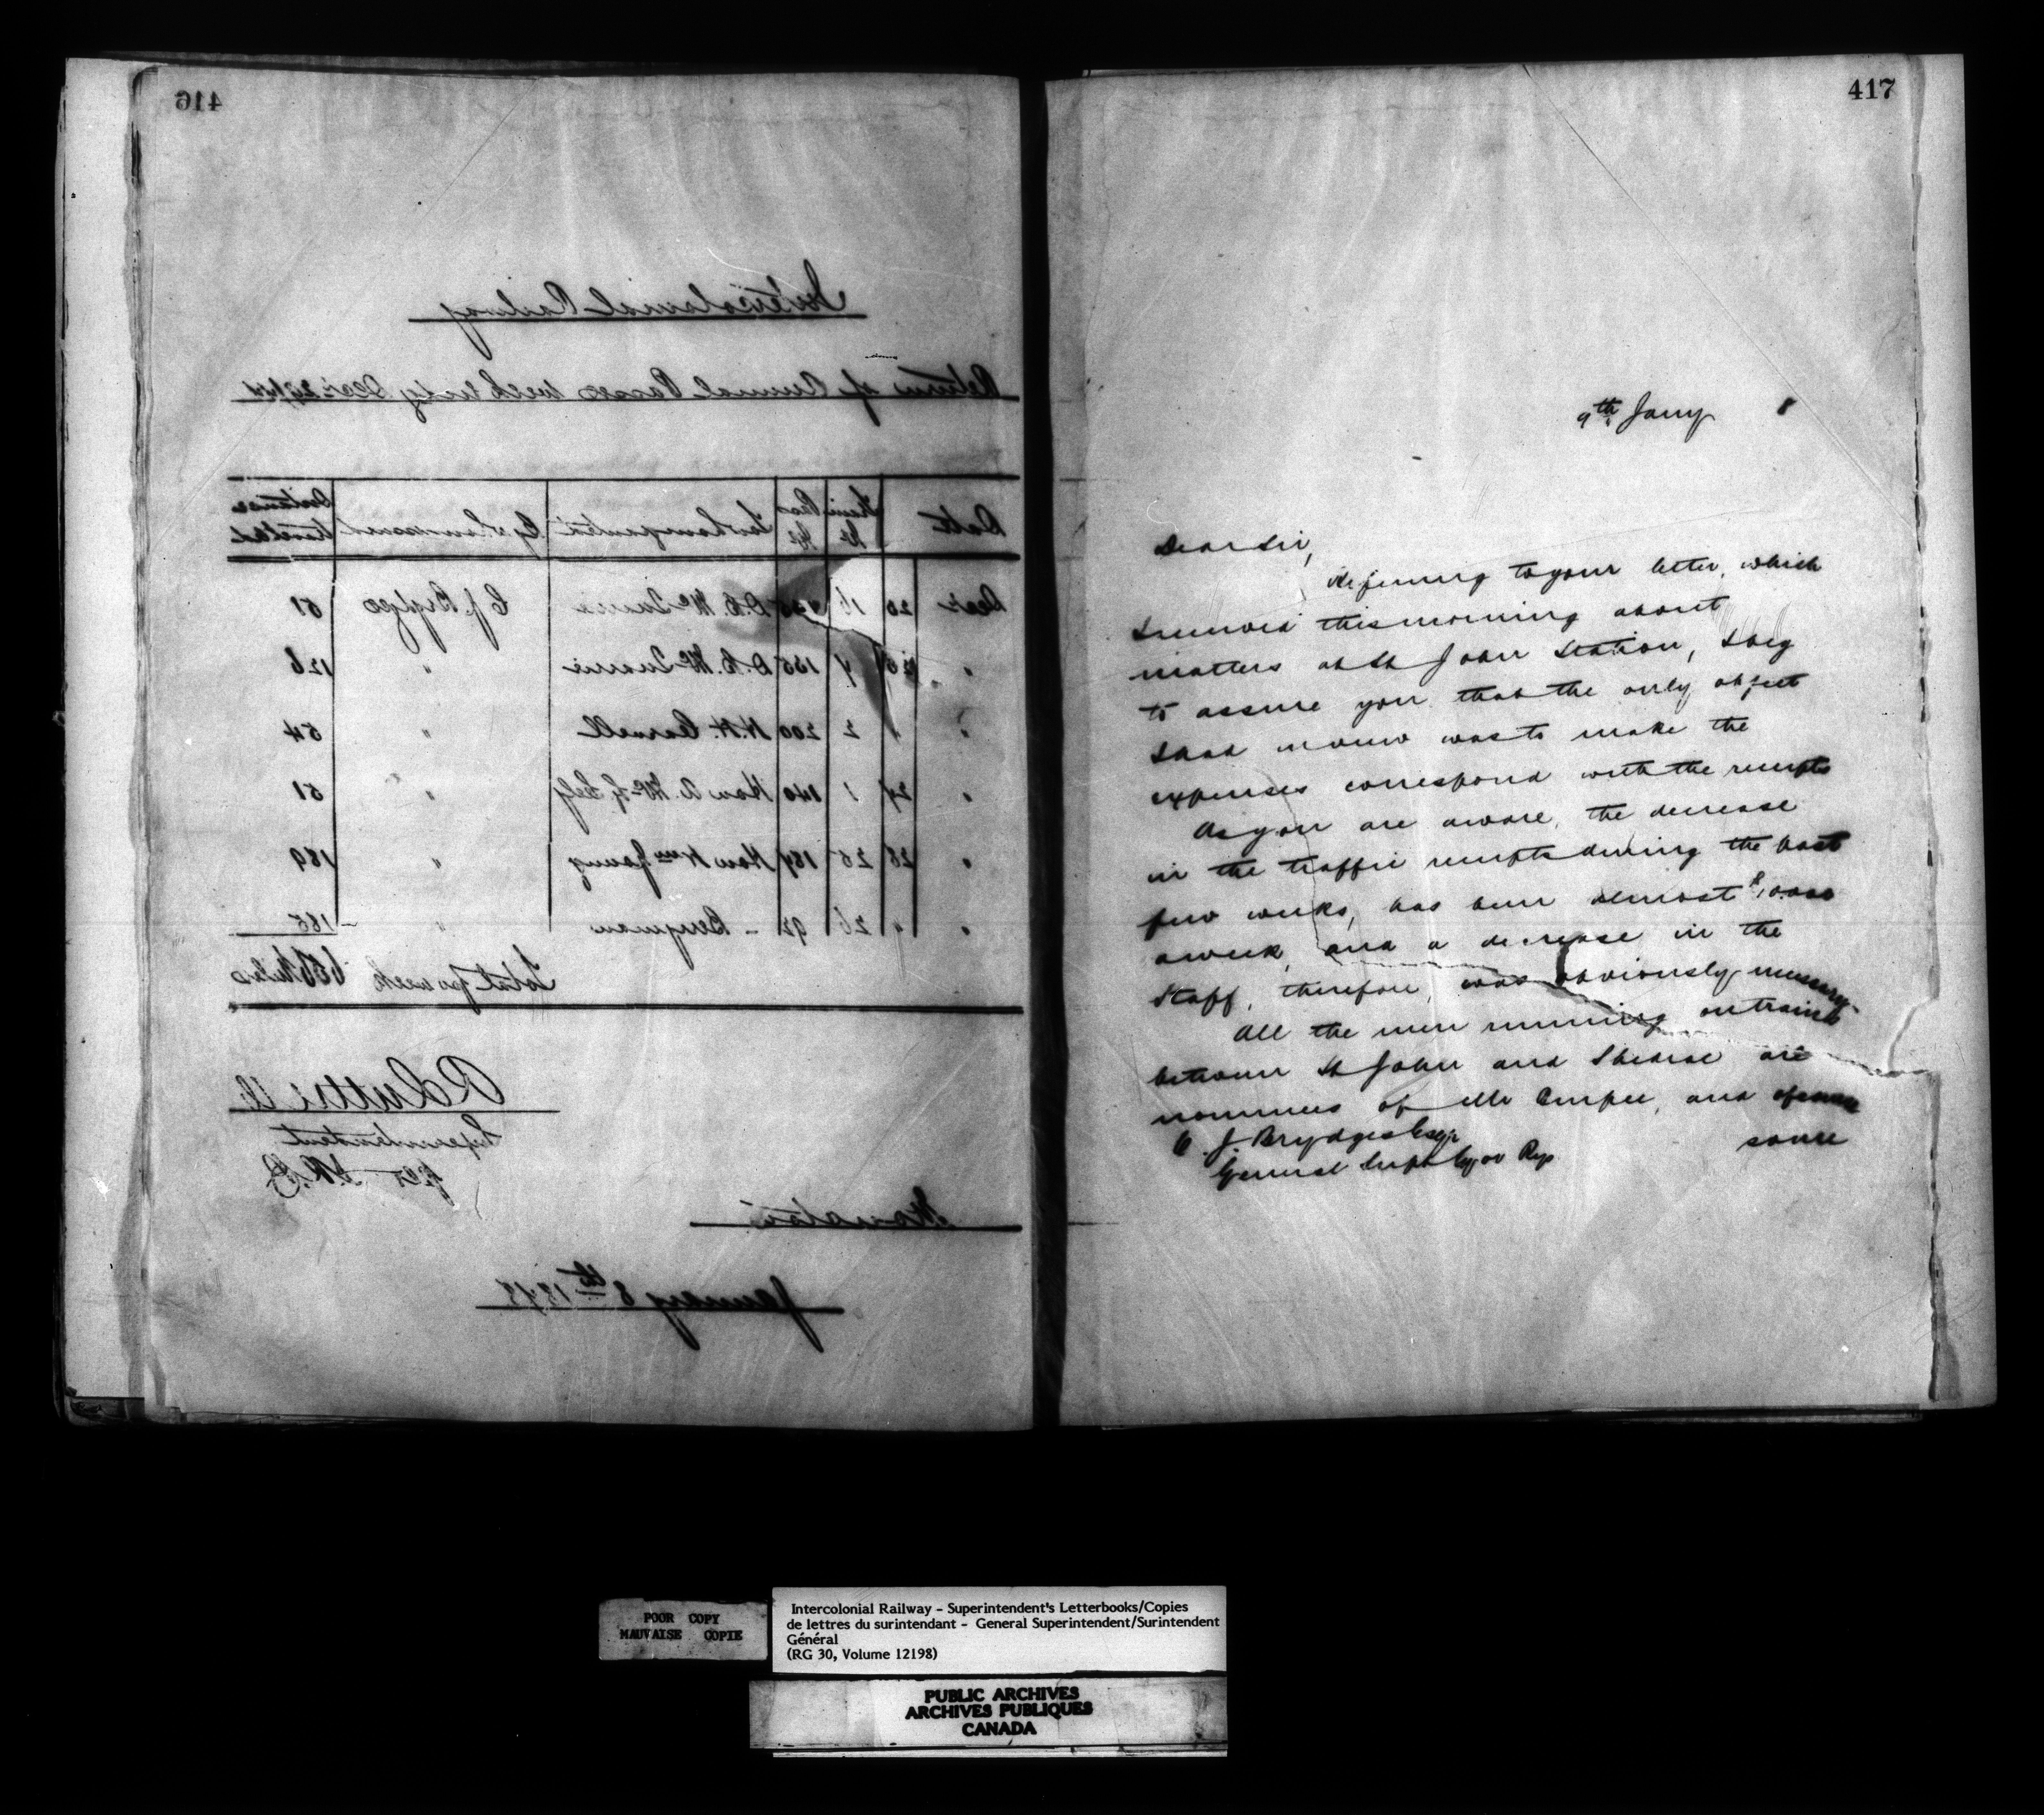 416
Intercolonial Railway
Return of Annual Passes week endg Decr 29/77
Date Train No Pass No To whom granted By whom issued Distance travelled
Decr 20 16 D. C. McQuarrie C J Brydges 51
" 185 D. C. McQuarrie " 126
" " 2 200 H. H. Carvell " 54
" 27 1 140 Hon A. McF. Kelly " 51
" 28 25 187 Hon Wm Young " 189
" " 26 92 – Bergman " 185
Total for week 656 Miles
R Luttrell
Superintendent
per
Moncton
January 8th 1878
417
9th Jany 8
Dear Sir,
Referring to your letter, which
I received this morning about
matters at St John Station, I beg
to assure you that the only object
I had in view was to make the
expenses correspond with the receipts
As you are aware, the decrease
in the traffic receipts during the past
few weeks, has been almost $10.000
a week, and a decrease in the
Staff, therefore, was obviously necessary.
All the men running on trains
between St John and Shediac are
nominees of Mr Burpee, and of course
some
C. J. Brydges Esqr
General Supt Gov Rys
POOR COPY
MAUVAISE COPIE
Intercolonial Railway - Superintendent's Letterbooks/Copies
de lettres du surintendant - General Superintendent/Surintendent
Général
(RG 30, Volume 12198)
PUBLIC ARCHIVES
ARCHIVES PUBLIQUES
CANADA